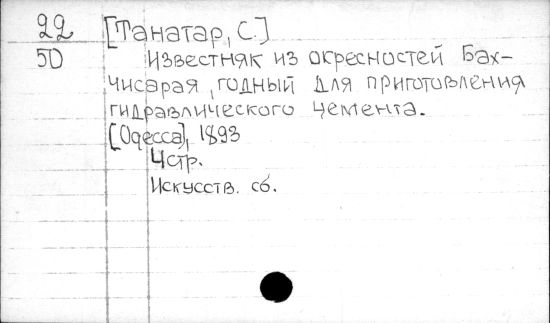 22 [Танатар, С.]
50 Известняк из окресностей Бах-
чисарая, годный для приготовления
гидравлического цемента.
[Одесса], 1893
4стр.
Искусств. сб.